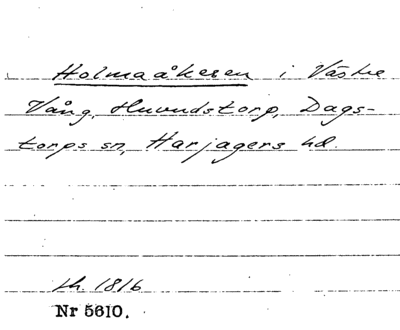 Holmaåkeren i Västre
Vång, Huvudstorp, Dags-
torps sn, Harjagers hd.
Lh 1816
Nr 5610.